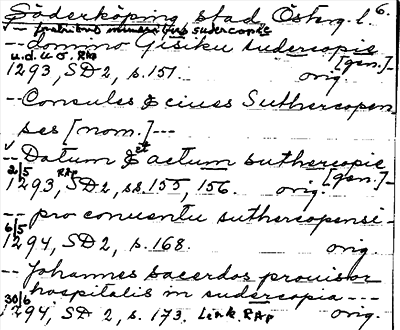 Söderköping stad Österg. l. 6.
-- fratribus minoribus sudercopie
-- domino Gisiku sudercopie
u.d. u.o. RAp [gen.] -
1293, SD 2, s. 151. orig.
-- Consules & ciues Suthercopen-
ses [nom.] ---
-- Datum & actum suthercopie
2/5 RAp [gen.] -
1293, SD 2, ss. 155, 156. orig.
-- pro conuentu suthercopensi -
6/5
1294, SD 2, s. 168. orig.
-- Johannes sacerdos prouisor
hospitalis in sudercopia ---
30/6
1294, SD 2, s. 173. Link. RAp orig.